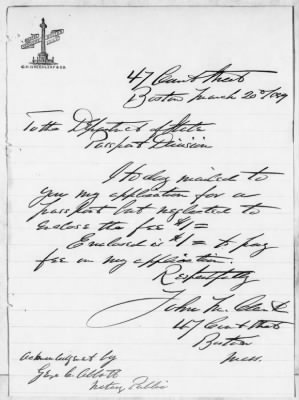 G.H. GREENLEAF & CO.
47 Court Street
Boston March 20th/09
To the Department of State
Passport Division
I today mailed to
you my application for a
passport but neglected to
enclose the fee $1=
Enclosed is $1= to pay
fee on my application.
Respectfully
John M.
47 Court Street
Boston
Mass.
by
Geo. C. Abbott
Notary Public